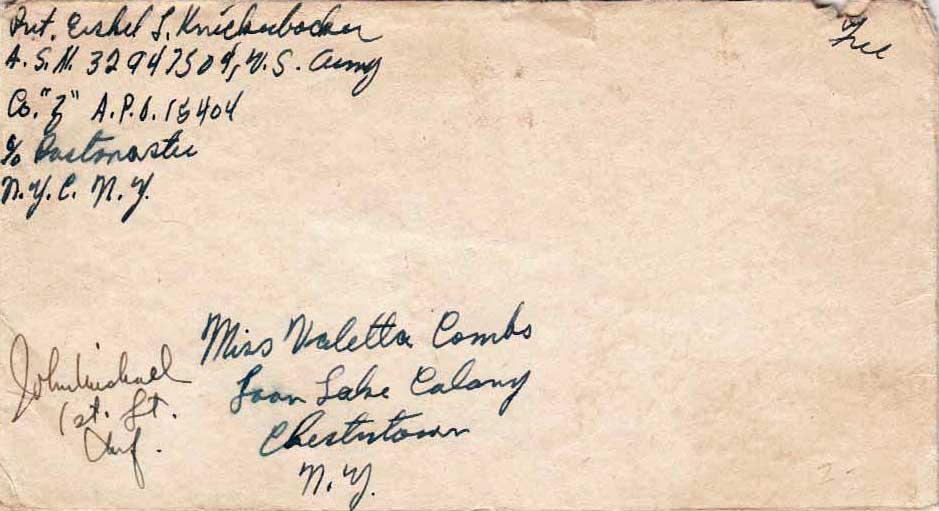 Pvt. Eishel L. Knickerbocker
A.S.N. 32947509, U.S. Army
Co. "Z" A.P.O. 15404
c/o Postmaster
N.Y.C. N.Y.
Free
Miss Valetta Combs
Loon Lake Colony
Chestertown
N.Y.
John Michael
1st. Lt.
Inf.